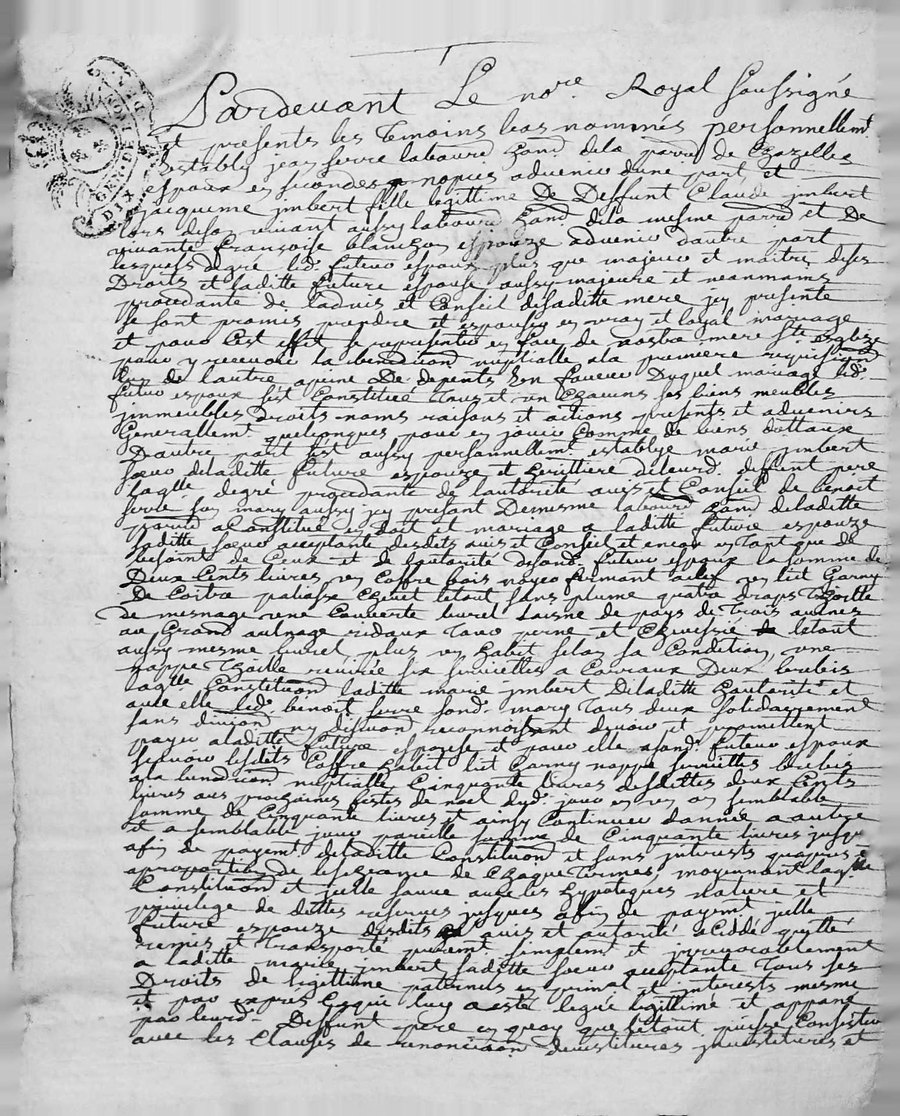 GEN DIX DEN
Pardevant Le nore Royal soussigné
et presents les temoins bas nommés personnellemt
Estably jean serre laboured hand. dela parr. de Chazelles
espoux en secondes nopces advenir dune part et
jacqueme imbert fille legittime De Deffunt Claude imbert
lors deson vivant aussy laboured hand. dela mesme parr. et De
vivante francoise blançon espouze advenir dautre part
lesquels degré led. futeur espoux plus que majeur et maitre deses
Droits et laditte future espouse aussy majeure et neanmoins
procedante de ladvis et Conseil desaditte mere jcy presente
se sont promis prendre et espouser en vray et loyal mariage
et pour Cest effet se representer en face de nostre mere Ste Eglize
pour y recevoir la benediction nuptialle ala premiere requisition
Lun de lautre apeine De depents En faveur Duquel mariage led.
futur espoux sest Constitué tous et un Chacuns ses biens meubles
immeubles Droits noms raisons et actions presents et advenirs
Generallemt quelconques pour en jouir Comme de biens dottaux
Dautre part sest aussy personnellemt establye marie imbert
soeur deladitte future espouze et herittiere deleurd. deffunt pere
laqlle degré procedante de lautorité avis et Conseil de benoit
serre son mary aussy jcy present Demesme laboured hand deladitte
parr. a Constitué en dot et mariage a laditte future espouze
saditte soeur acceptante desdits avis et Conseil et encor en tant que de
besoint de Ceux et de lautorité desond. futeur espoux la somme de
Deux Cents livres un Coffre bois noyer fermant aclef un lict Garny
De Coitre paliasse Chevet letout sans plume quatre draps thoille
de mesnage une Couverte burel laisne de pays de trois aulnes
au Grand aulnage ridaux tour perne et Chevessié letout
aussy mesme burel plus un habit selon sa Condition, une
nappe thoille six serviettes a Carraux Deux brebis
laqlle Constitution laditte marie imbert Deladitte hautorité et
avec elle led. benoit serre sond. mary tous deux solidairement
sans division ny discution reconnoissent devoir et promettent
payer aladitte future espouse et pour elle asond. futeur espoux
sçavoir lesdits Coffre habit lit Garny nappe serviettes brebis
ala benediction nuptialle Cinquante livres desdittes deux Cents
livres aux prochaines festes de noel dud. jour en un an semblable
somme de Cinquante livres et ainsy Continuer dannée a autre
et a semblable jour pareille somme de Cinquante livres jusqu
afin de payemt deladitte Constitution et sans interests
aproportion de lescheance de Chaque termes moyennant laqlle
Constitution et jcelle sauve avec les hypoteques nature et
privilege de dettes reservés jusques afin de payemt jcelle
future espouze desdits avis et autorité a Cedé quitté
remis et transporté puremt simplemt et jrrevocablement
a laditte marie imbert saditte soeur acceptante tous ses
Droits de legittime paternels en prinal et interests mesme
et par exprès Ce qui luy a esté legué legittime et appané
par leurd. Deffunt pere en quoy que letout puisse Consister
avec les Clauses de renonciaon devestitures jnvestitures et